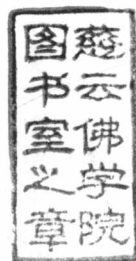 慈云佛学院
图书室之章